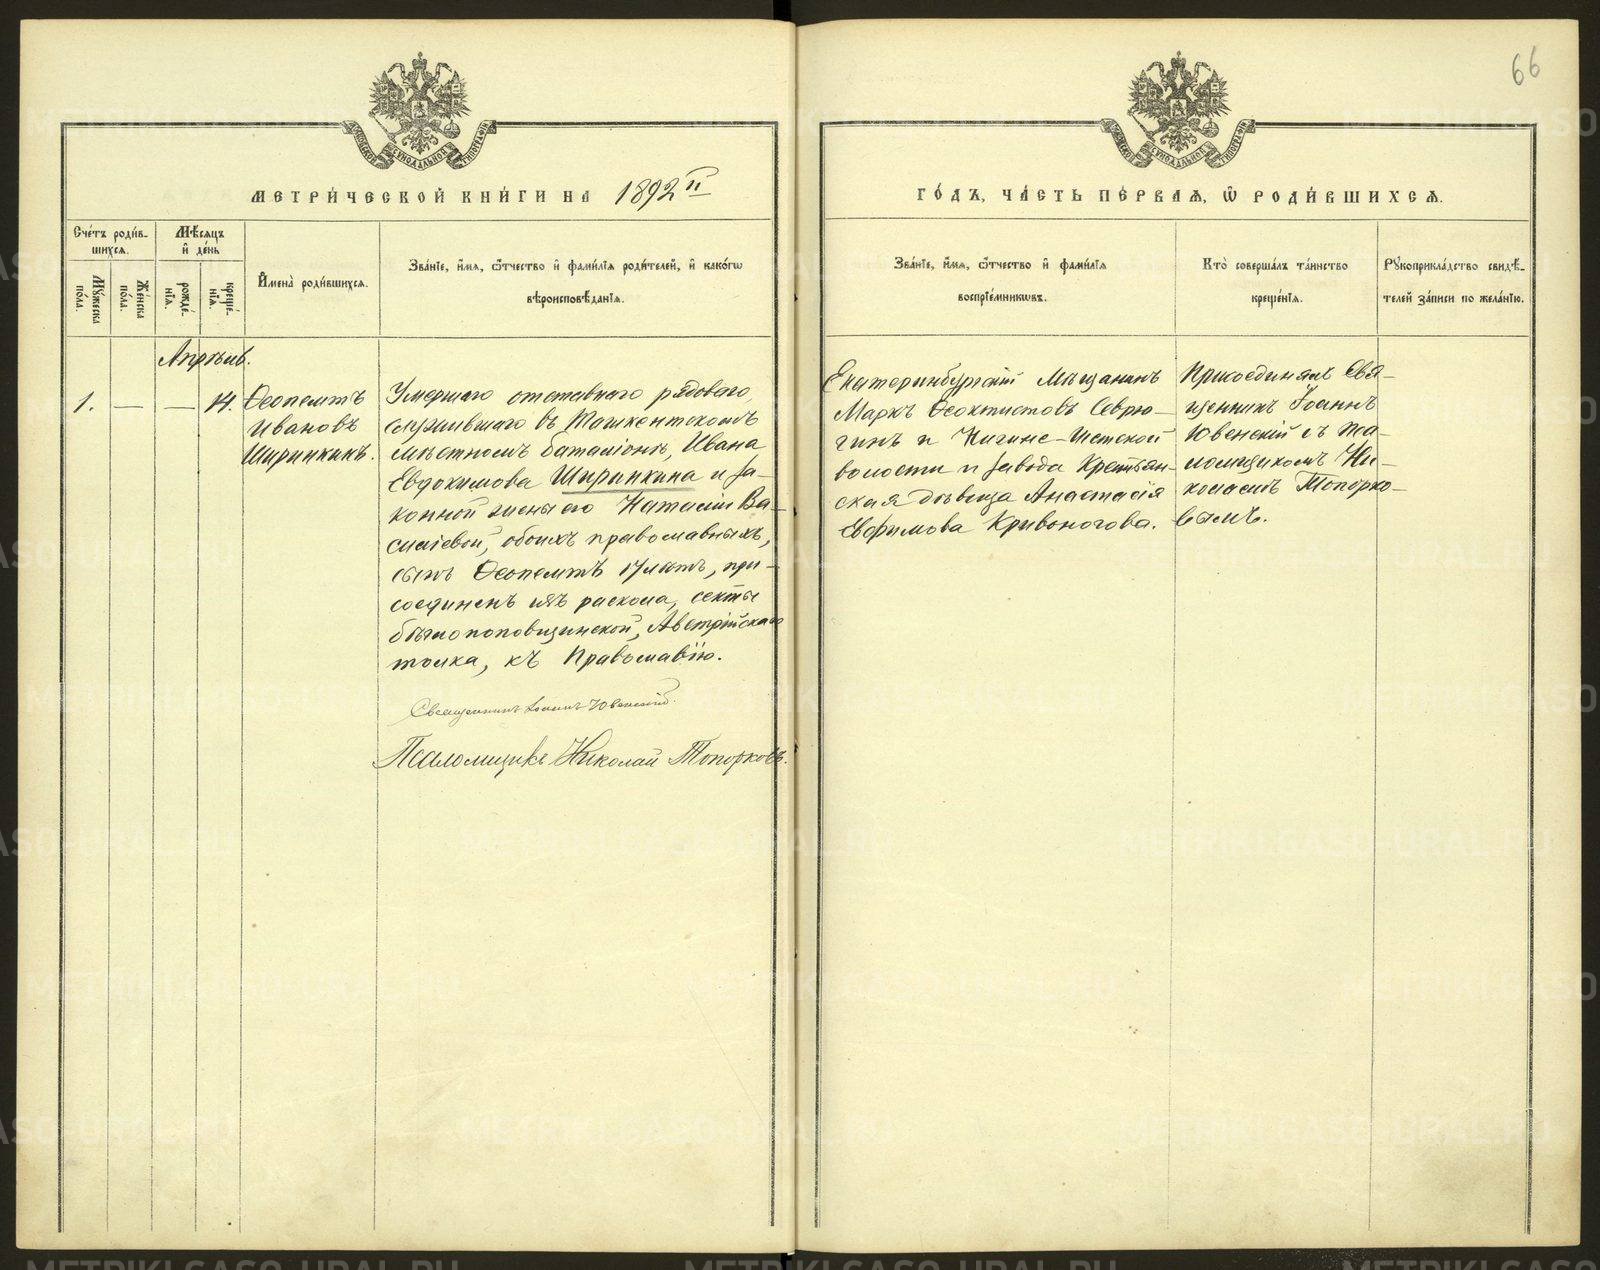 66
МЕТРИ́ЧЕСКОЙ КНИ́ГИ НА 1892й
ГО́ДЪ, ЧА́СТЬ ПЕ́РВАѦ, Ѽ РОДИ́ВШИХСѦ.
Сче́тъ роди́в-
шихсѧ.
Мꙋ́жеска по́ла.
Же́нска по́ла.
Мѣ́сѧцъ и҆ де́нь
рожде́-нїѧ.
креще́-нїѧ.
И҆мена̀ роди́вшихсѧ.
Зва́нїе, и҆́мѧ, ѻ҆́тчество и҆ фами́лїѧ роди́телей, и҆ како́гѡ
вѣроисповѣ́данїѧ.
Зва́нїе, и҆́мѧ, ѻ҆́тчество и҆ фами́лїѧ
воспрїе́мникѡвъ.
Кто̀ соверша́лъ та́инство
креще́нїѧ.
Рꙋкоприкла́дство свидѣ́-
телей за́писи по жела́нїю.
Апрѣль.
1. — — 14.
Ѳеопемтъ
Ивановъ
Ширинкинъ.
Умершаго отставнаго рядоваго,
служившаго въ Ташкентскомъ
мѣстномъ баталіонѣ, Ивана
Евдокимова Ширинкина и за-
конной жены его Наталіи Ва-
сильевой, обоихъ православныхъ,
сынъ Ѳеопемтъ 17 лѣтъ, при-
соединенъ изъ раскола, секты
бѣглопоповщинской, Австрійскаго
толка, къ Православію.
Священникъ Іоаннъ Ювенскій.
Псаломщикъ Николай Топорковъ.
Екатеринбургскій Мѣщанинъ
Маркъ Ѳеоктистовъ Севрю-
гинъ и Нязе-Петровской
волости и завода Крестьян-
ская дѣвица Анастасія
Евфимова Кривоногова.
Присоединялъ Свя-
щенникъ Іоаннъ
Ювенскій съ Пса-
ломщикомъ Ни-
колаемъ Топорко-
вымъ.
METRIKI.GASO-URAL.RU